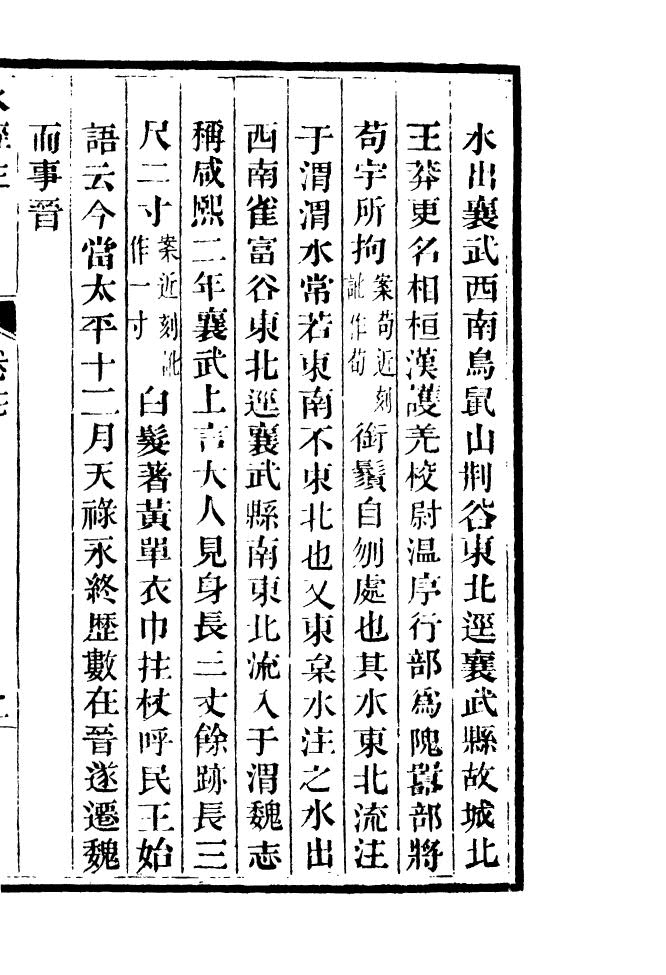 水出襄武西南鳥鼠山荆谷東北逕襄武縣故城北
王莽更名相桓漢護羌校尉温序行部爲隗囂部將
苟宇所拘案苟近刻訛作荀銜鬚自刎處也其水東北流注
于渭渭水常若東南不東北也又東枲水注之水出
西南雀富谷東北逕襄武縣南東北流入于渭魏志
稱咸熙二年襄武上言大人見身長三丈餘跡長三
尺二寸案近刻訛作一寸白髮著黃單衣巾拄杖呼民王始
語云今當太平十二月天祿永終歷數在晉遂遷魏
而事晉
水經注 卷十七